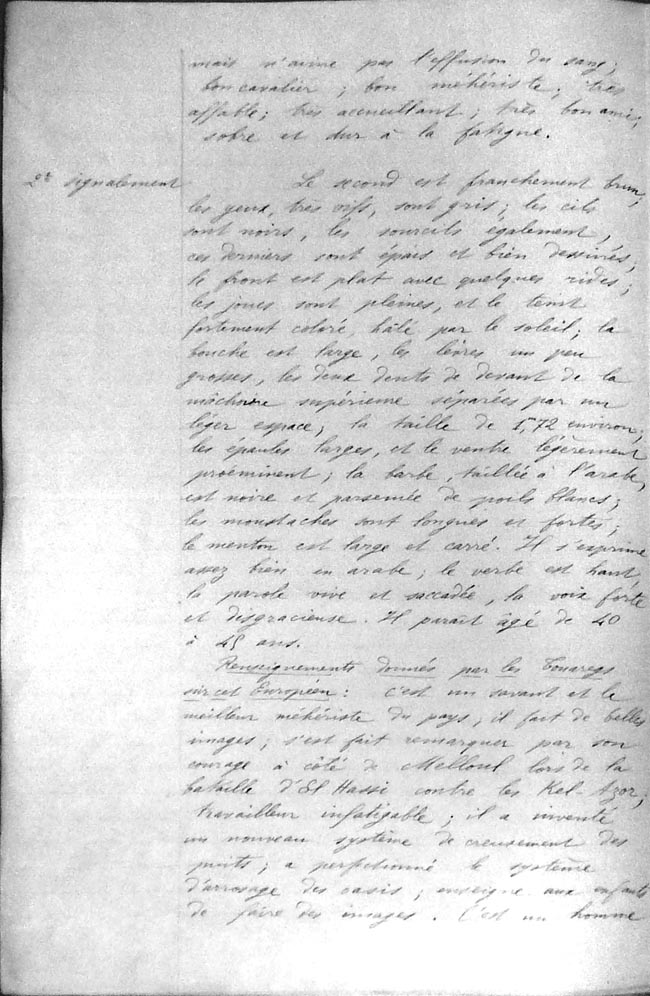 mais n'aime pas l'effusion du sang;
bon cavalier; bon méhériste; très
affable; très accueillant; très bon ami;
sobre et dur à la fatigue.
2e signalement
Le second est franchement brun;
les yeux, très vifs, sont gris; les cils
sont noirs, les sourcils également,
ces derniers sont épais et bien dessinés;
le front est plat avec quelques rides;
les joues sont pleines, et le teint
fortement coloré, hâlé par le soleil; la
bouche est large, les lèvres un peu
grosses, les deux dents de devant de la
mâchoire supérieure séparées par un
léger espace; la taille de 1m,72 environ;
les épaules larges, et le ventre légèrement
proéminent; la barbe, taillée à l'arabe,
est noire et parsemée de poils blancs;
les moustaches sont longues et fortes;
le menton est large et carré. Il s'exprime
assez bien en arabe; le verbe est haut,
la parole vive et saccadée, la voix forte
et disgracieuse. Il paraît âgé de 40
à 45 ans.
Renseignements donnés par les Touaregs
sur cet Européen: c'est un savant et le
meilleur méhériste du pays; il fait de belles
images; s'est fait remarquer par son
courage à côté de Melloul lors de la
bataille d'El Hassi contre les Kel-Azor;
travailleur infatigable; il a inventé
un nouveau système de creusement des
puits; a perfectionné le système
d'arrosage des oasis; enseigne aux enfants
de faire des images. C'est un homme